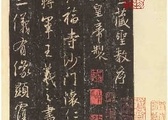 藏聖教序
皇帝製
福寺沙門懷仁
將軍王羲之書
二儀有像顯覆